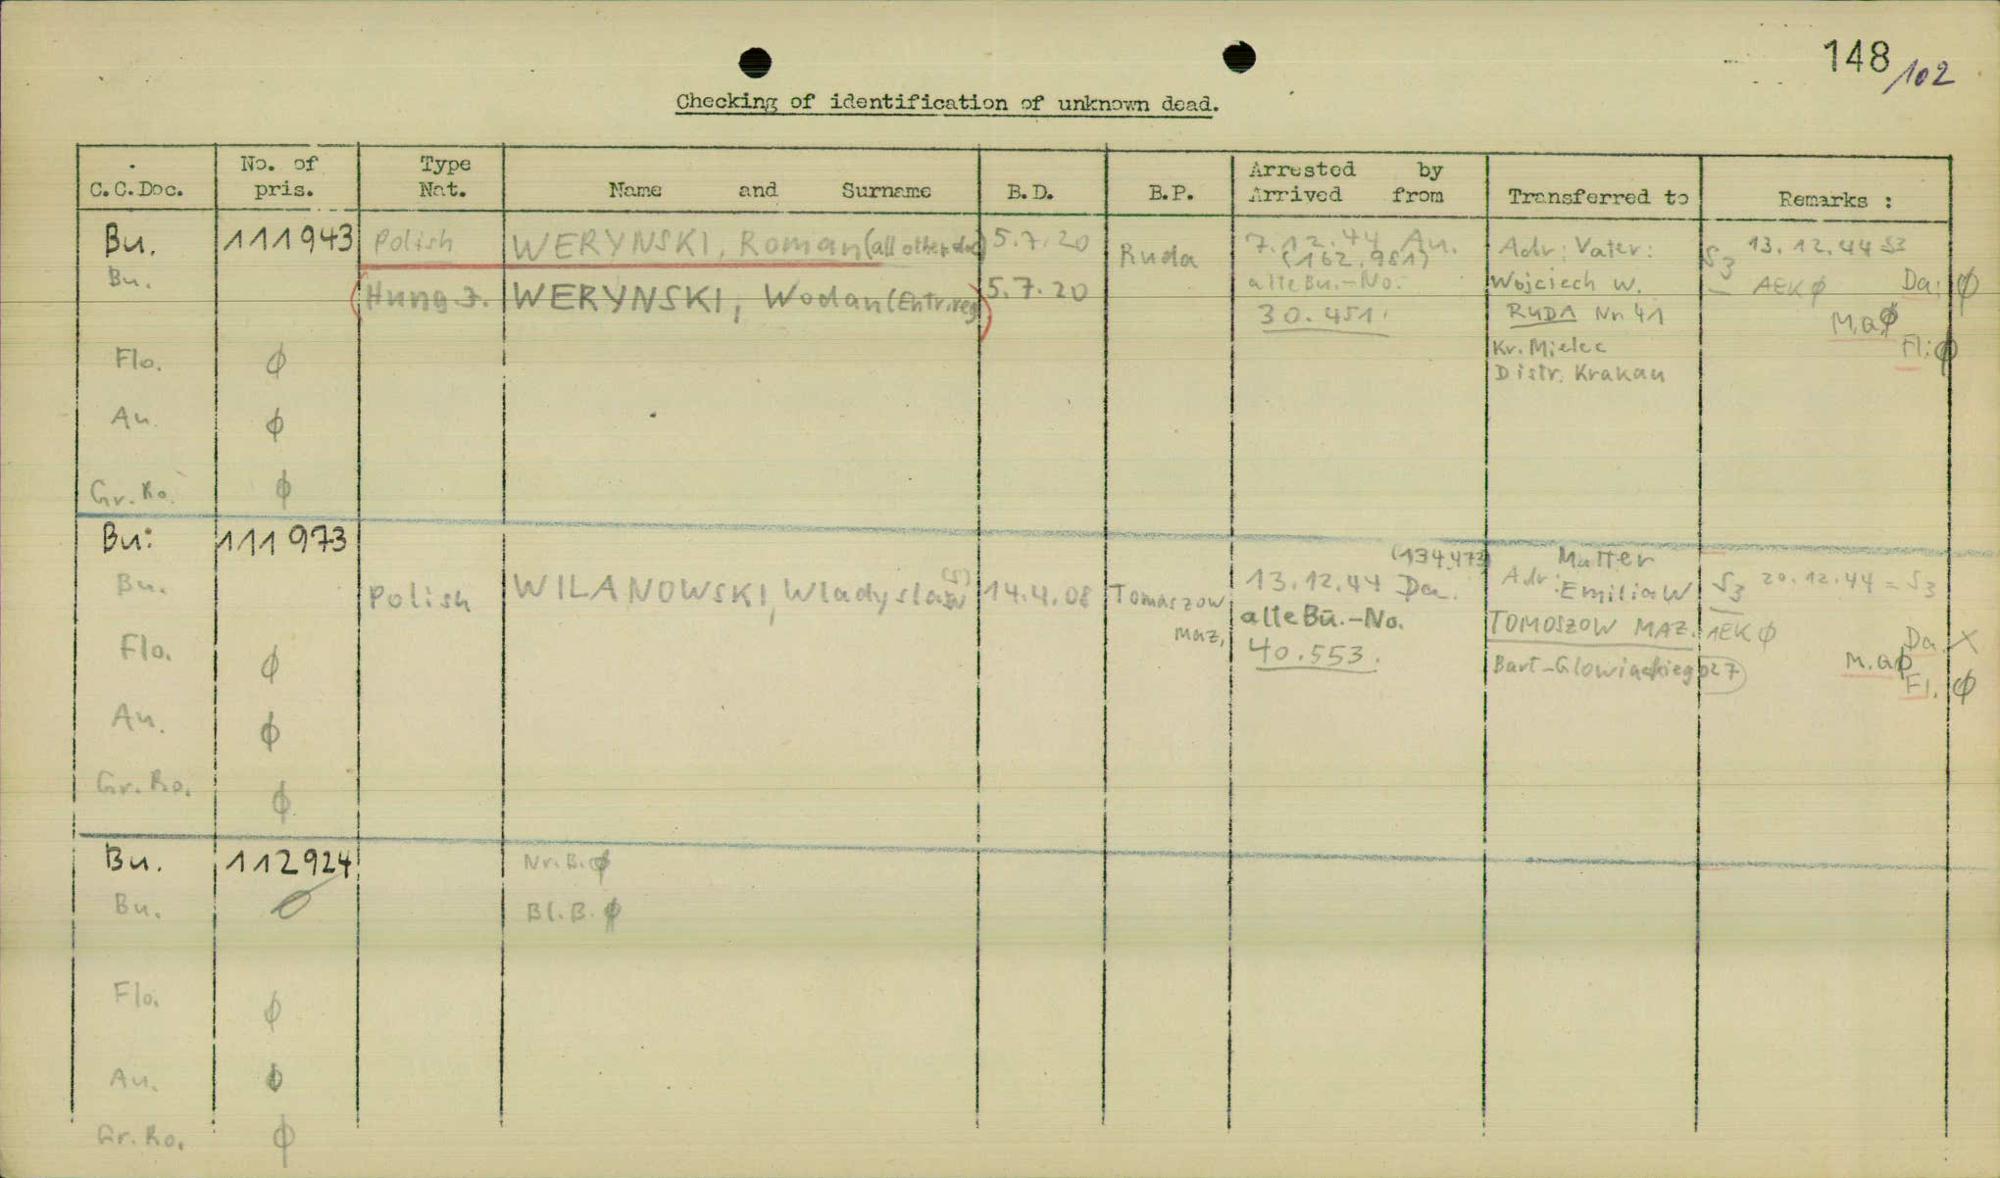 148/102
Checking of identification of unknown dead.
C.C.Doc. No. of pris. Type Nat. Name and Surname B.D. B.P. Arrested by Arrived from Transferred to Remarks :
Bu. 111943 Polish WERYNSKI, Roman (all other doc) 5.7.20 Ruda 7.12.44 Au. Adr: Vater: S3 13.12.44 S3
(162.981)
Bu. (Hung J. WERYNSKI, Wodan (Entr.reg) 5.7.20 alte Bu.-No. Wojciech W. AEK ϕ Da: ϕ
30.451. RUDA Nr 41 M.a ϕ
Flo. ϕ Kr. Mielec Fl: ϕ
Distr. Krakau
Au. ϕ
Gr. Ro. ϕ
Bu: 111973 (134.473) Mutter
Bu. Polish WILANOWSKI, Wladyslaw 14.4.08 Tomaszow Maz. 13.12.44 Da. Adr: Emilia W S3 20.12.44 = S3
alte Bu.-No. TOMOSZOW MAZ. AEK ϕ Da. X
Flo. ϕ 40.553. Bart-Glowiackiego 27 M.a ϕ
Fl. ϕ
Au. ϕ
Gr. Ro. ϕ
Bu. 112924 Nr.B. ϕ
Bu. 0 Bl.B. ϕ
Flo. ϕ
Au. ϕ
Gr. Ro. ϕ